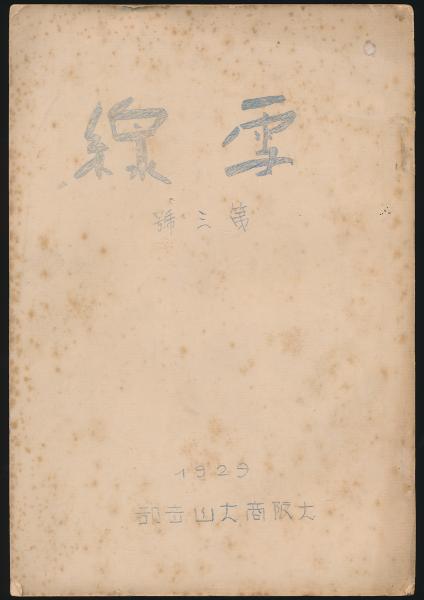 雪線
第三號
1929
大阪商大山岳部